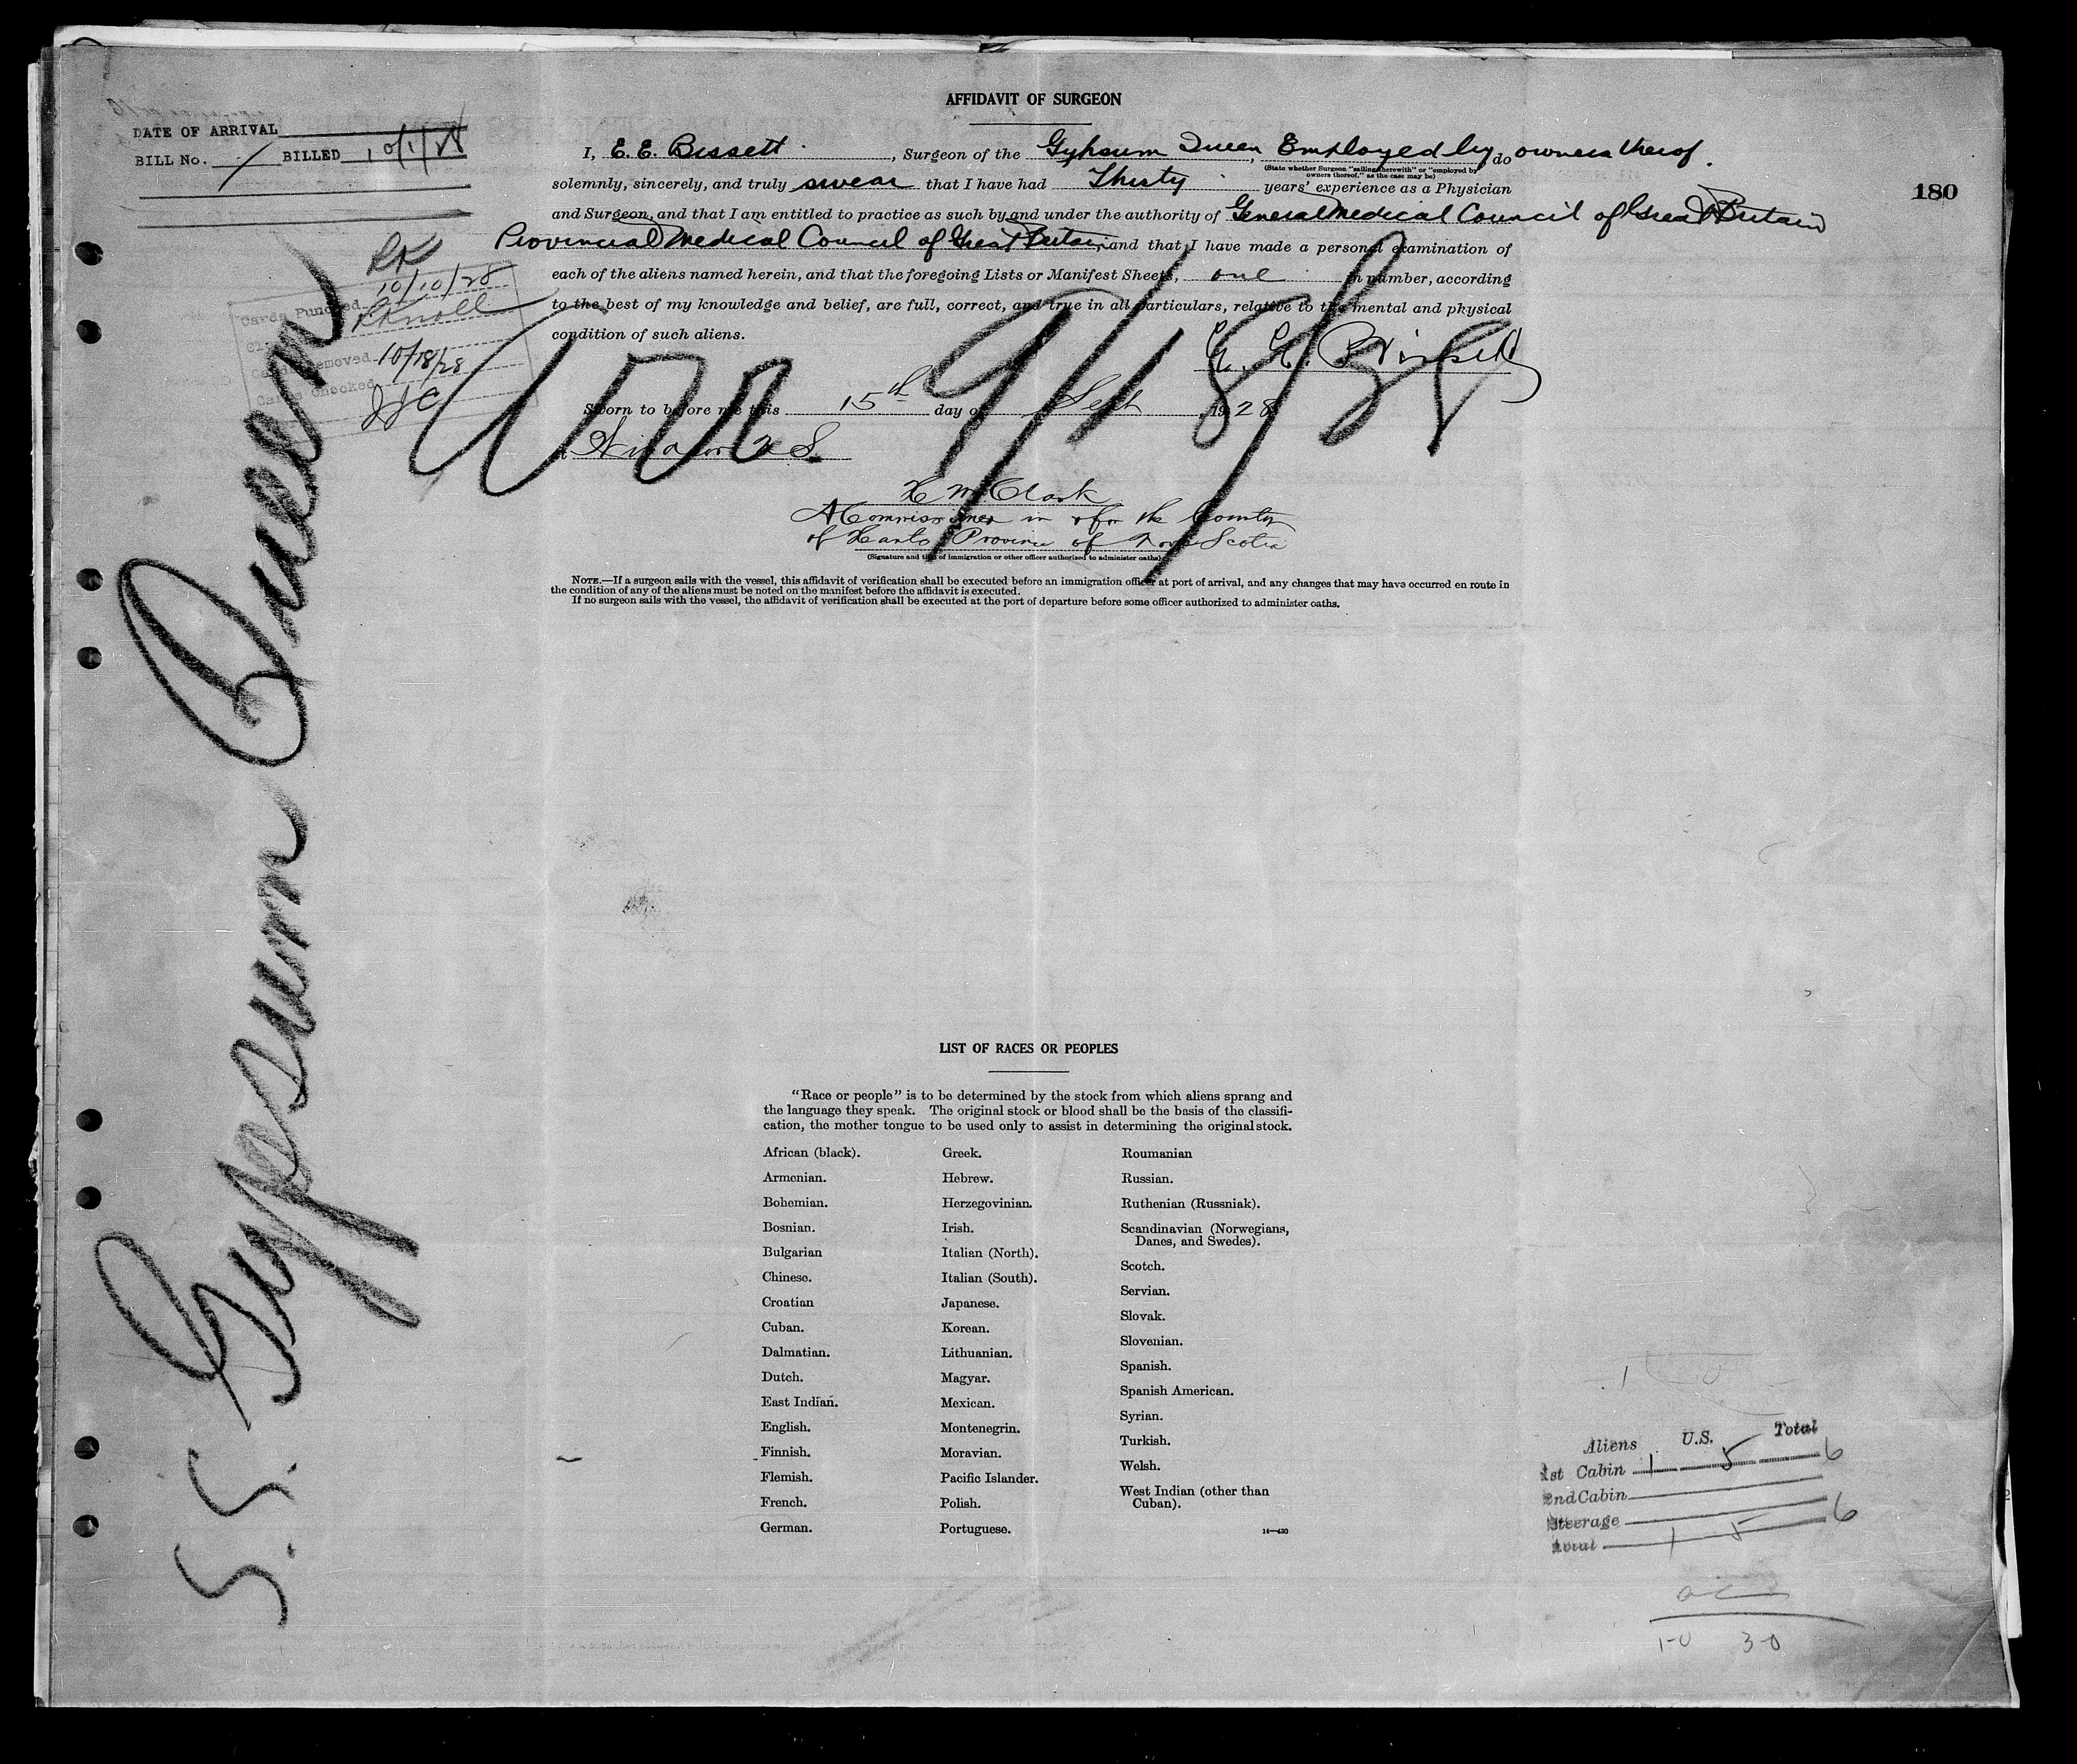 AFFIDAVIT OF SURGEON
DATE OF ARRIVAL
BILL No. BILLED 10/1/28
I, E. E. Bissett, Surgeon of the Gypsum Queen, Employed by do owners therof.
(State whether Surgeon "sailing therewith" or "employed by
owners thereof," as the case may be)
solemnly, sincerely, and truly swear that I have had Thirty years' experience as a Physician
180
and Surgeon, and that I am entitled to practice as such by and under the authority of General Medical Council of Great Britain
Provincial Medical Council of Great Britain, and that I have made a personal examination of
each of the aliens named herein, and that the foregoing Lists or Manifest Sheets, one in number, according
to the best of my knowledge and belief, are full, correct, and true in all particulars, relative to the mental and physical
condition of such aliens.
E. E. Bissett
RK
Cards Punched 10/10/28
RKnoll
Cards Removed 10/18/28
Cards Checked
9/18/28
Sworn to before me this 15th day of Sept 1928
at Windsor N S.
H M Clark
A Commissioner in & for the County
of Hants Province of Nova Scotia
(Signature and title of immigration or other officer authorized to administer oaths)
NOTE.—If a surgeon sails with the vessel, this affidavit of verification shall be executed before an immigration officer at port of arrival, and any changes that may have occurred en route in
the condition of any of the aliens must be noted on the manifest before the affidavit is executed.
If no surgeon sails with the vessel, the affidavit of verification shall be executed at the port of departure before some officer authorized to administer oaths.
S. S. Gypsum Queen
LIST OF RACES OR PEOPLES
"Race or people" is to be determined by the stock from which aliens sprang and
the language they speak. The original stock or blood shall be the basis of the classifi-
cation, the mother tongue to be used only to assist in determining the original stock.
African (black).
Armenian.
Bohemian.
Bosnian.
Bulgarian
Chinese.
Croatian
Cuban.
Dalmatian.
Dutch.
East Indian.
English.
Finnish.
Flemish.
French.
German.
Greek.
Hebrew.
Herzegovinian.
Irish.
Italian (North).
Italian (South).
Japanese.
Korean.
Lithuanian.
Magyar.
Mexican.
Montenegrin.
Moravian.
Pacific Islander.
Polish.
Portuguese.
Roumanian
Russian.
Ruthenian (Russniak).
Scandinavian (Norwegians,
Danes, and Swedes).
Scotch.
Servian.
Slovak.
Slovenian.
Spanish.
Spanish American.
Syrian.
Turkish.
Welsh.
West Indian (other than
Cuban).
14—430
Aliens U.S. Total
1st Cabin 1 5 6
2nd Cabin
Steerage
Total 1 5 6
1-0 3-0